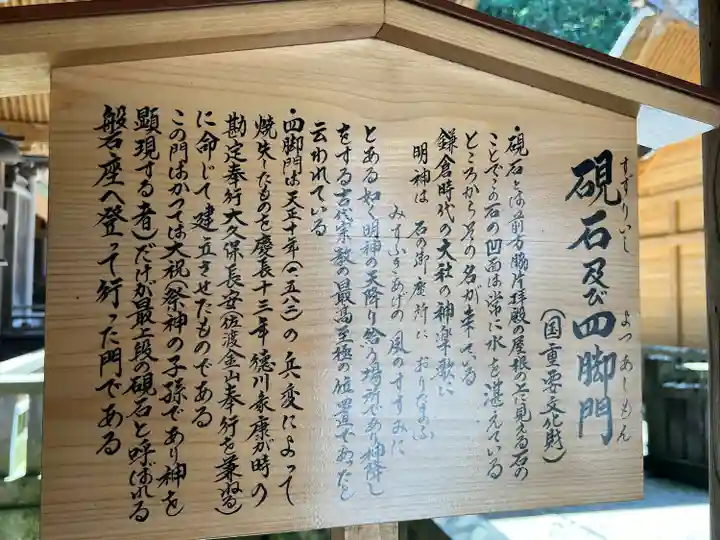 すずりいし　よつあしもん
硯石及び四脚門
（国重要文化財）
・硯石とは前方脇片拝殿の屋根の上に見える石の
ことでこの石の凹面は常に水を湛えている
ところから其の名が来ている
鎌倉時代の大社の神楽歌に
明神は　石の御座所に　おりたまふ
みすふきあげの　風のすすみに
とある如く明神の天降り給う場所であり神降し
をする古代宗教の最高至極の位置であったと
云われている
・四脚門は天正十年（一五八二）の兵変によって
焼失したものを慶長十三年徳川家康が時の
勘定奉行大久保長安（佐渡金山奉行を兼ねる）
に命じて建立させたものである
この門はかつては大祝（祭神の子孫であり神を
顕現する者）だけが最上段の硯石と呼ばれる
磐座へ登って行った門である